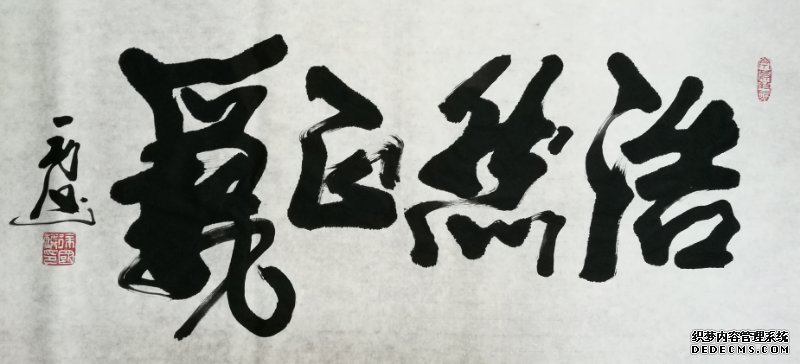 浩然正氣
织梦内容管理系统
DEDECMS.COM